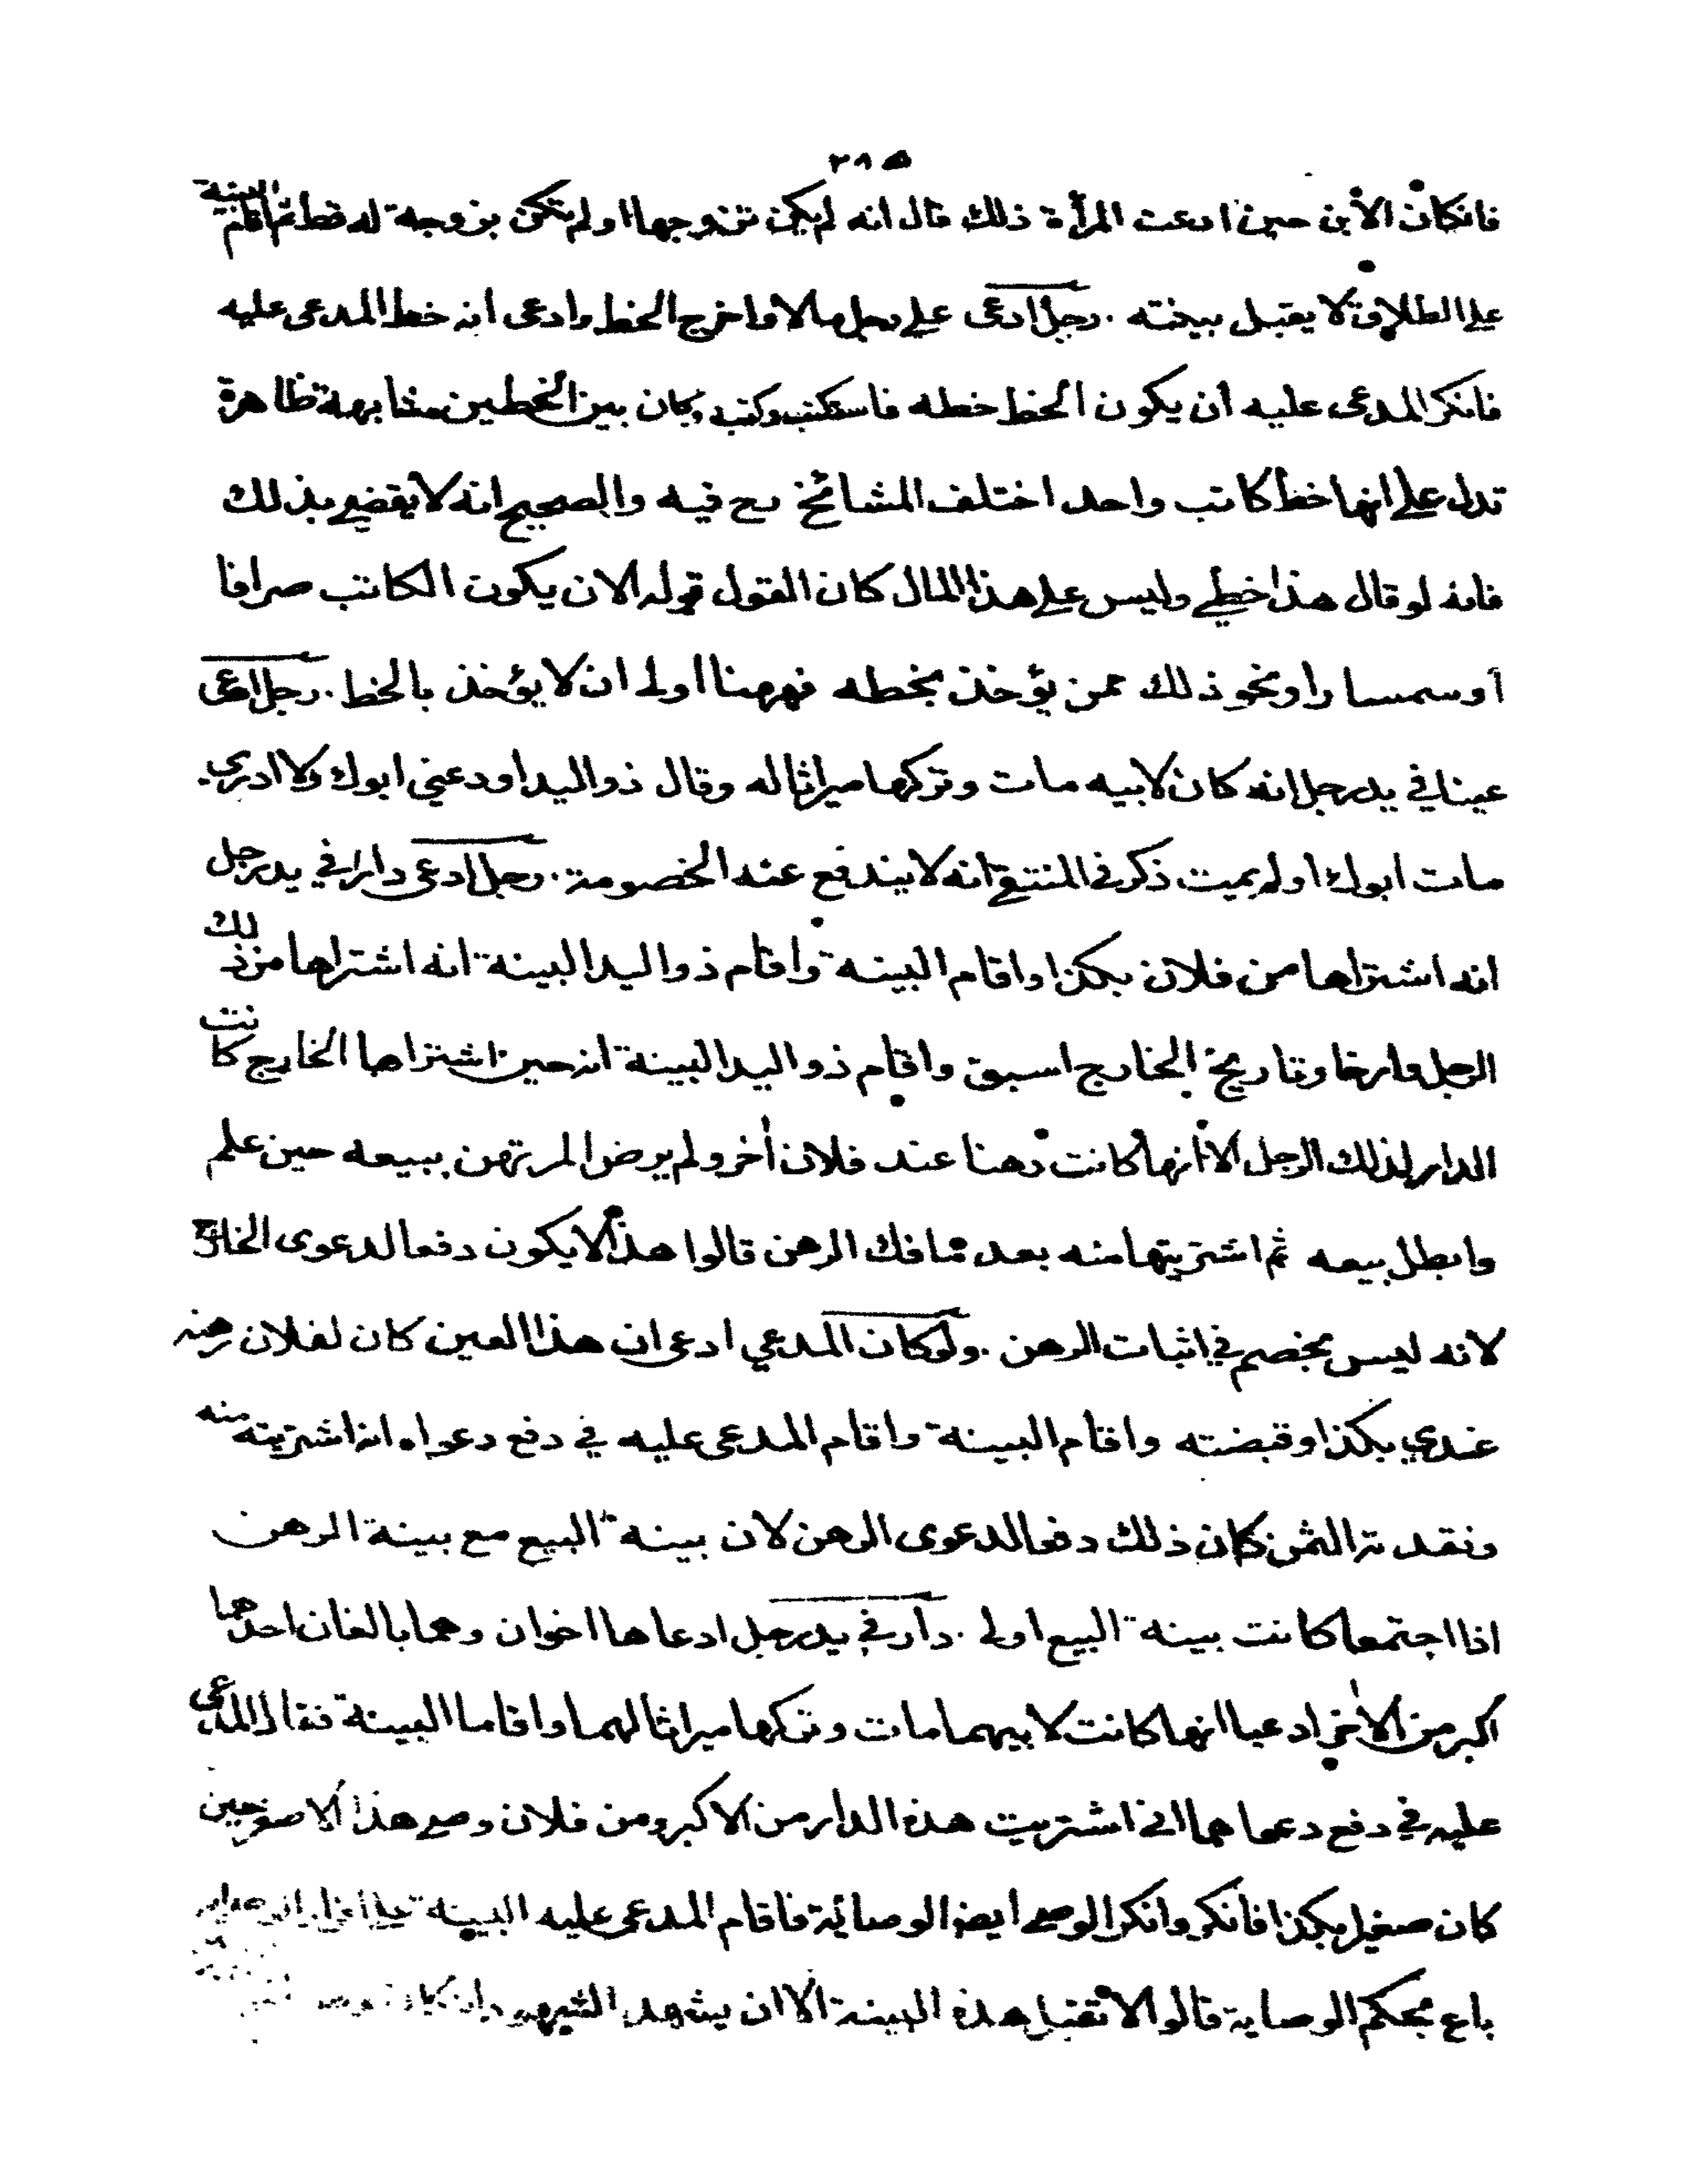 ٢٨٥
فانكان الابن حين ادعت المرأة ذلك قال انه لم يكن تزوجها او لم يكن بزوجة له قط ثم اقام البينة
على الطلاق لا يقبل بينته . رجل ادعى على رجل مالا واخرج الخط وادعى انه خط المدعى عليه
فانكر المدعى عليه أن يكون الخط خطه فاستكتب وكتب وكان بين الخطين مشابهة ظاهرة
تدل على انهما خط كاتب واحد اختلف المشائخ رح فيه والصحيح انه لا يقضي بذلك
فانه لو قال هذا خطي وليس علي هذا المال كان القول قوله الا ان يكون الكاتب صرافا
أو سمسارا او نحو ذلك ممن يؤخذ بخطه فههنا اولى ان لا يؤخذ بالخط . رجل ادعى
عينا في يد رجل انه كان لابيه مات وتركها ميراثا له وقال ذو اليد اودعني ابوك ولا ادري
مات ابوك او لم يمت ذكر في المنتقى انه لا يندفع عنه الخصومة . رجل ادعى دارا في يد رجل
انه اشتراها من فلان بكذا واقام البينة واقام ذو اليد البينة انه اشتراها من ذلك
الرجل وارخا وتاريخ الخارج اسبق واقام ذو اليد البينة انه حين اشتراها الخارج كانت
الدار لذلك الرجل الا انها كانت رهنا عند فلان أخر ولم يرض المرتهن ببيعه حين علم
وابطل بيعه ثم اشتريتها منه بعد ما فك الرهن قالوا هذا لا يكون دفعا لدعوى الخارج
لانه ليس بخصم في اثبات الرهن . ولو كان المدعي ادعى ان هذا العين كان لفلان رهنه
عندي بكذا وقبضته واقام البينة واقام المدعى عليه في دفع دعواه انه اشتريته منه
ونقدته الثمن كان ذلك دفعا لدعوى الرهن لان بينة البيع مع بينة الرهن
اذا اجتمعا كانت بينة البيع اولى . دار في يد رجل ادعاها اخوان وهما بالغان احدهما
اكبر من الاخر ادعيا انها كانت لابيهما مات وتركها ميراثا لهما واقاما البينة فقال المدعى
عليه في دفع دعواهما اني اشتريت هذه الدار من الاكبر ومن فلان وصي هذا الاصغر حين
كان صغيرا بكذا فانكر وانكر الوصي ايضا الوصائية فاقام المدعى عليه البينة على
باع بحكم الوصاية قالوا لا تقبل هذه البينة الا ان يشهد الشهود